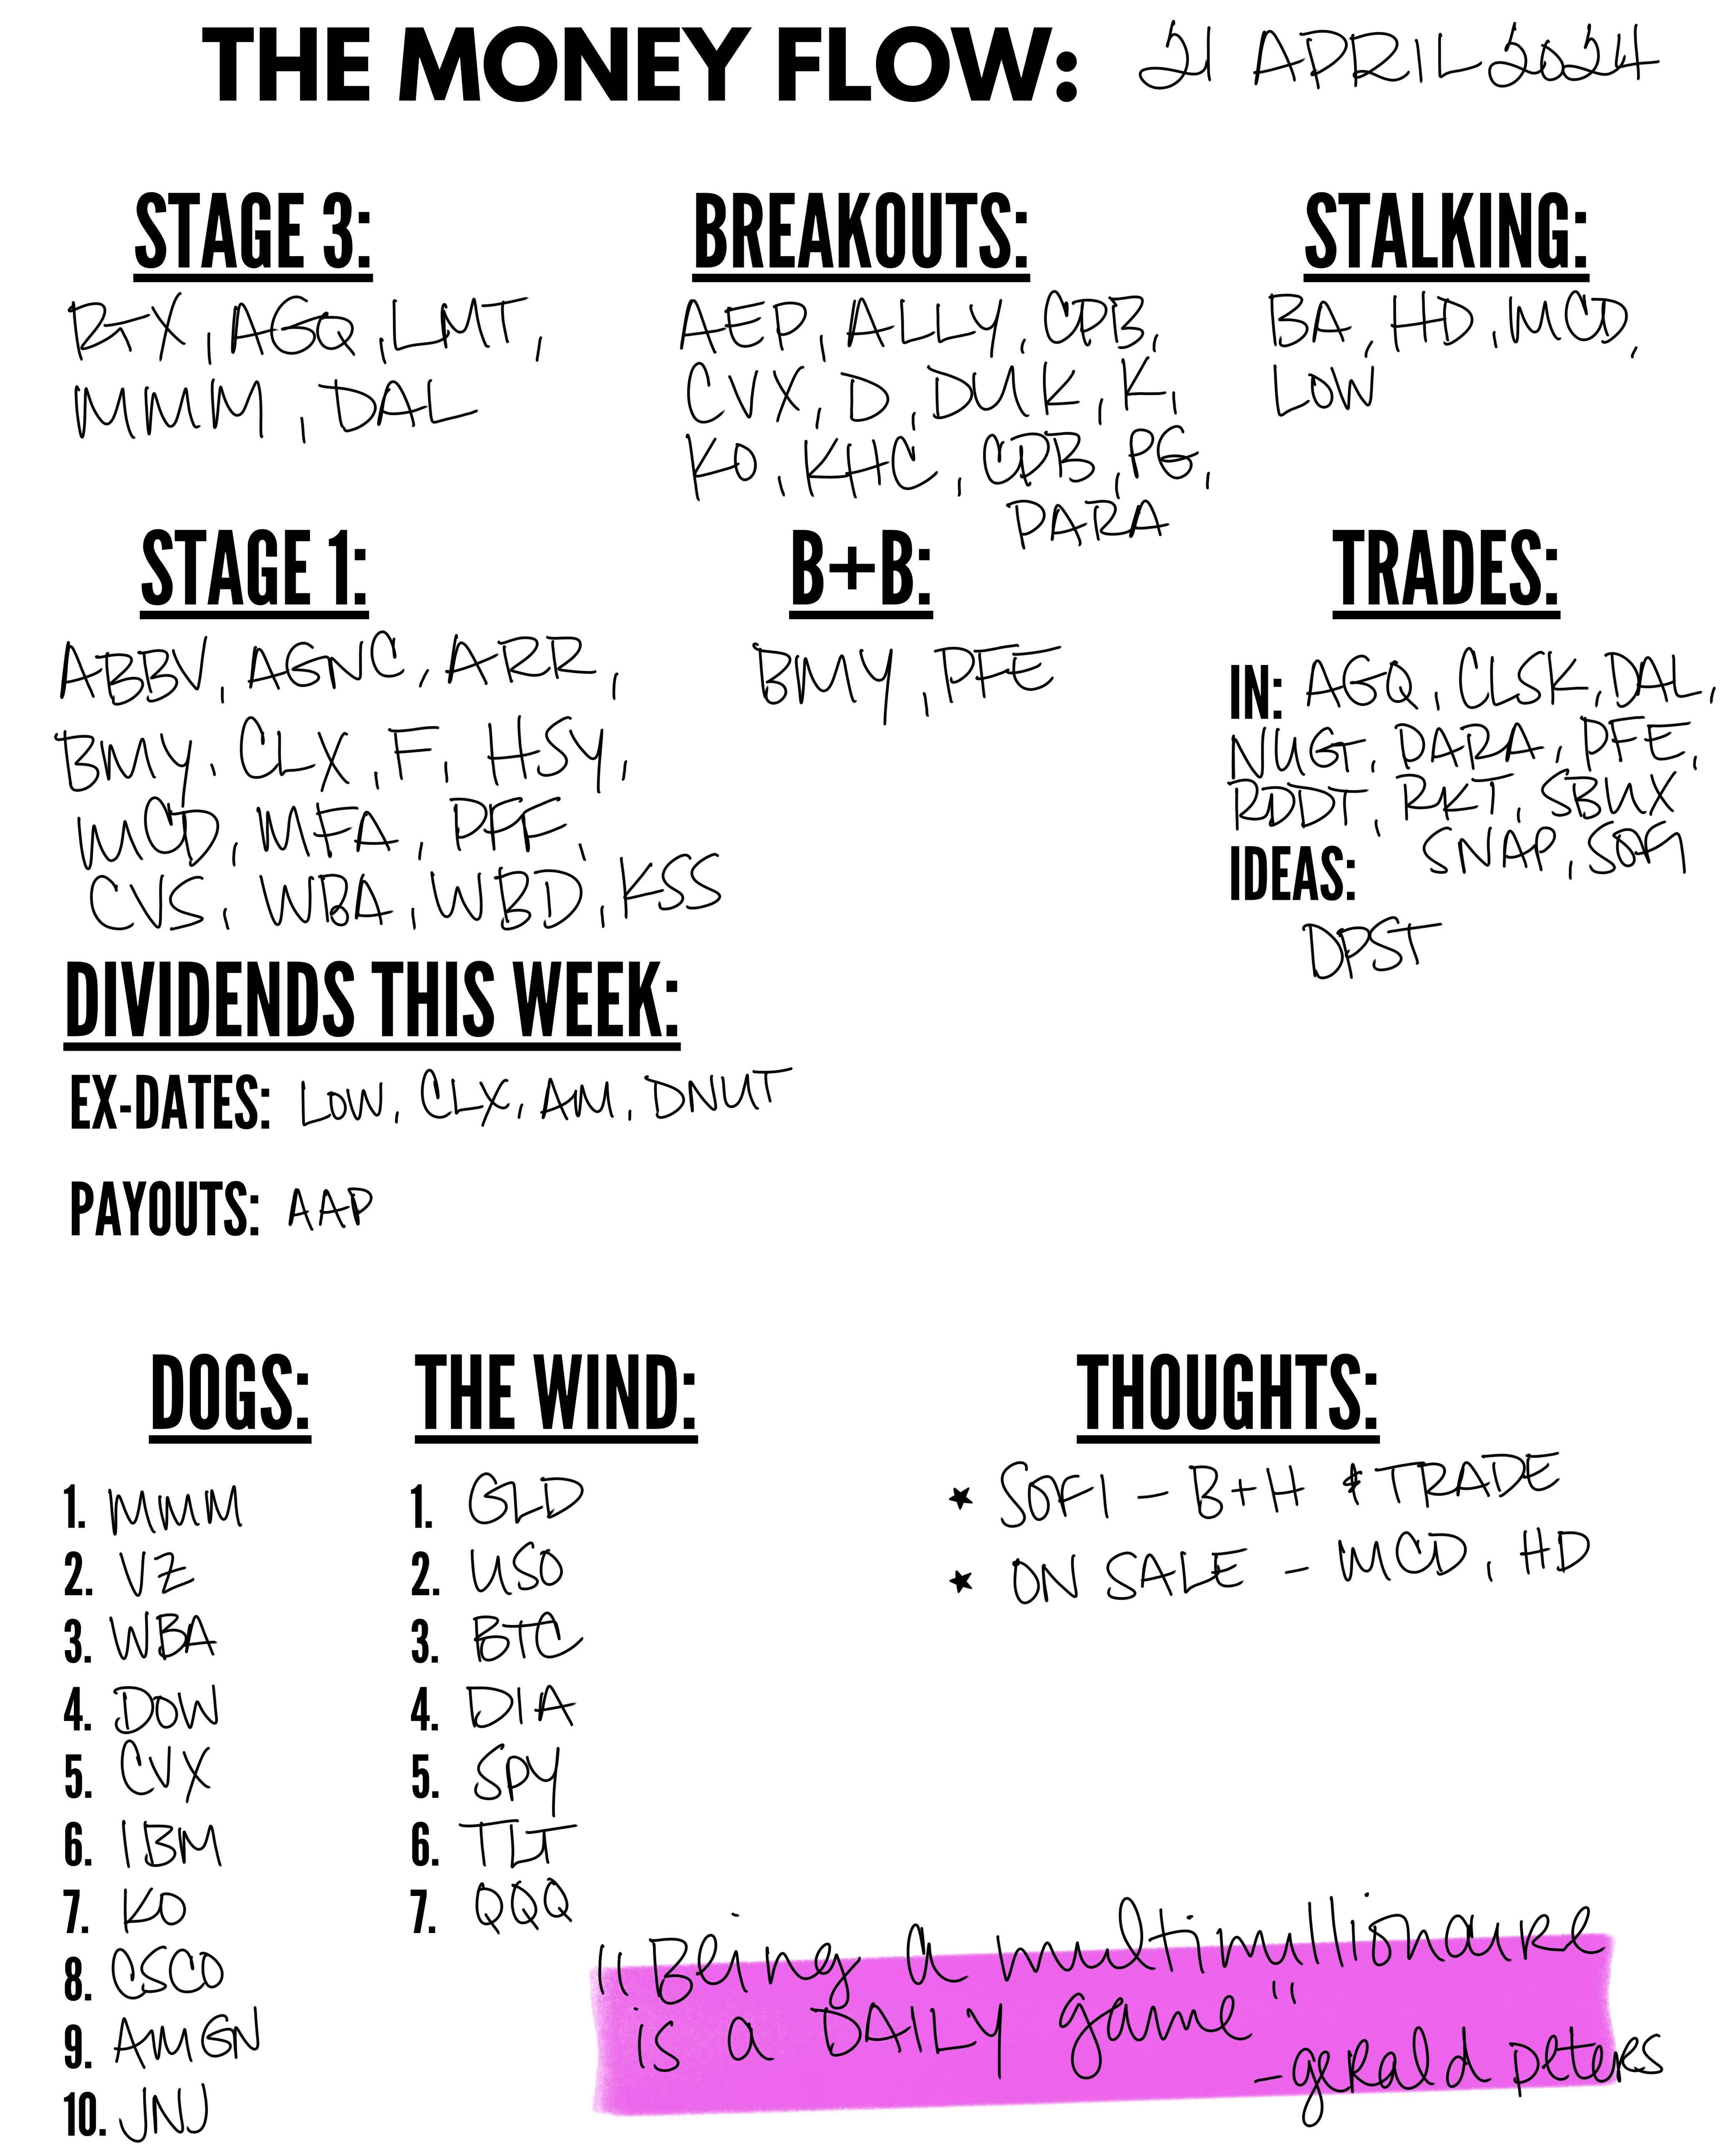 THE MONEY FLOW: 21 APRIL 2024
STAGE 3:
RTX, AGQ, LMT,
MMM, DAL
BREAKOUTS:
AEP, ALLY, CPB,
CVX, D, DUK, K,
KO, KHC, CPB, PG,
PARA
STALKING:
BA, HD, MCD,
LOW
STAGE 1:
ABBV, AGNC, ARR,
BMY, CLX, F, HSY,
MCD, MFA, PFE,
CVS, WBA, WBD, KSS
B+B:
BMY, PFE
TRADES:
IN: AGQ, CLSK, DAL,
NUGT, PARA, PFE,
RDDT, RKT, SBUX
SNAP, SOFI
IDEAS:
DPST
DIVIDENDS THIS WEEK:
EX-DATES: LOW, CLX, AM, DNUT
PAYOUTS: AAP
DOGS:
1. MMM
2. VZ
3. WBA
4. DOW
5. CVX
6. IBM
7. KO
8. CSCO
9. AMGN
10. JNJ
THE WIND:
1. GLD
2. USO
3. BTC
4. DIA
5. SPY
6. TLT
7. QQQ
THOUGHTS:
★ SOFI - B+H & TRADE
★ ON SALE - MCD, HD
"Being a multimillionaire
is a DAILY game"
-gerald peters